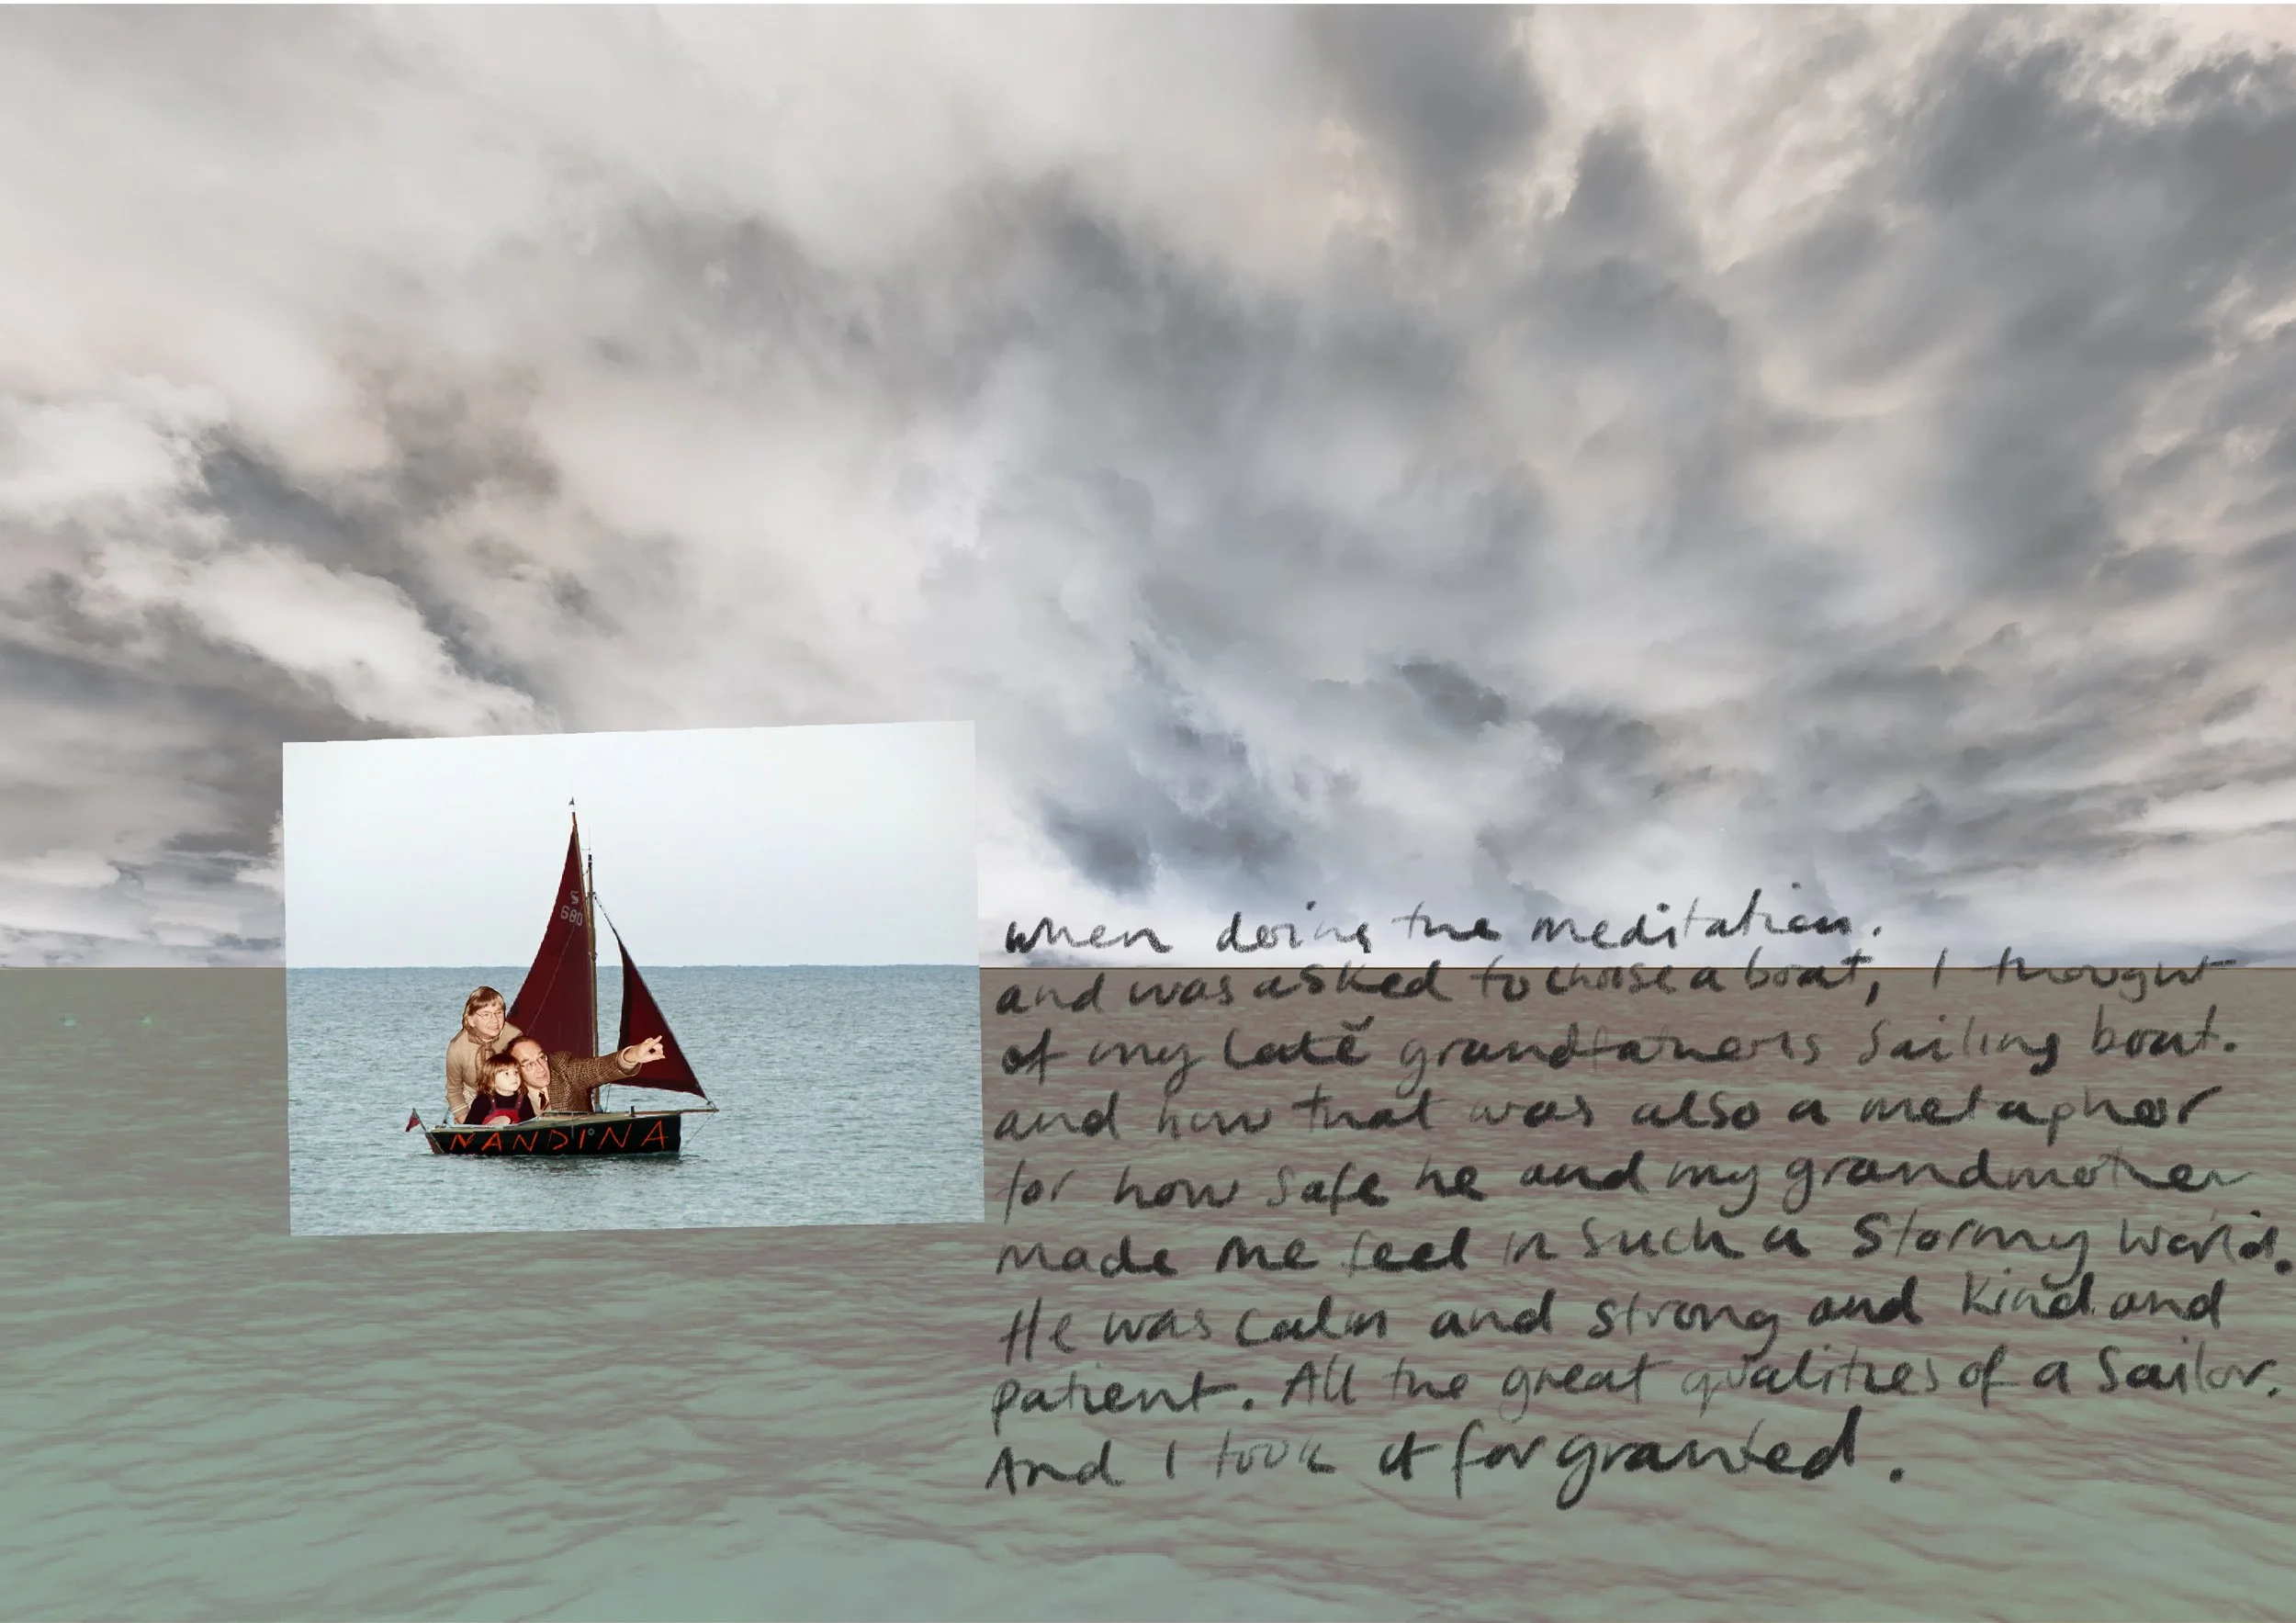 S
680
NANDINA
when doing the meditation.
and was asked to choose a boat, I thought
of my late grandfathers sailing boat.
and how that was also a metaphor
for how safe he and my grandmother
made me feel in such a stormy world.
He was calm and strong and kind and
patient. All the great qualities of a sailor.
And I took it for granted.